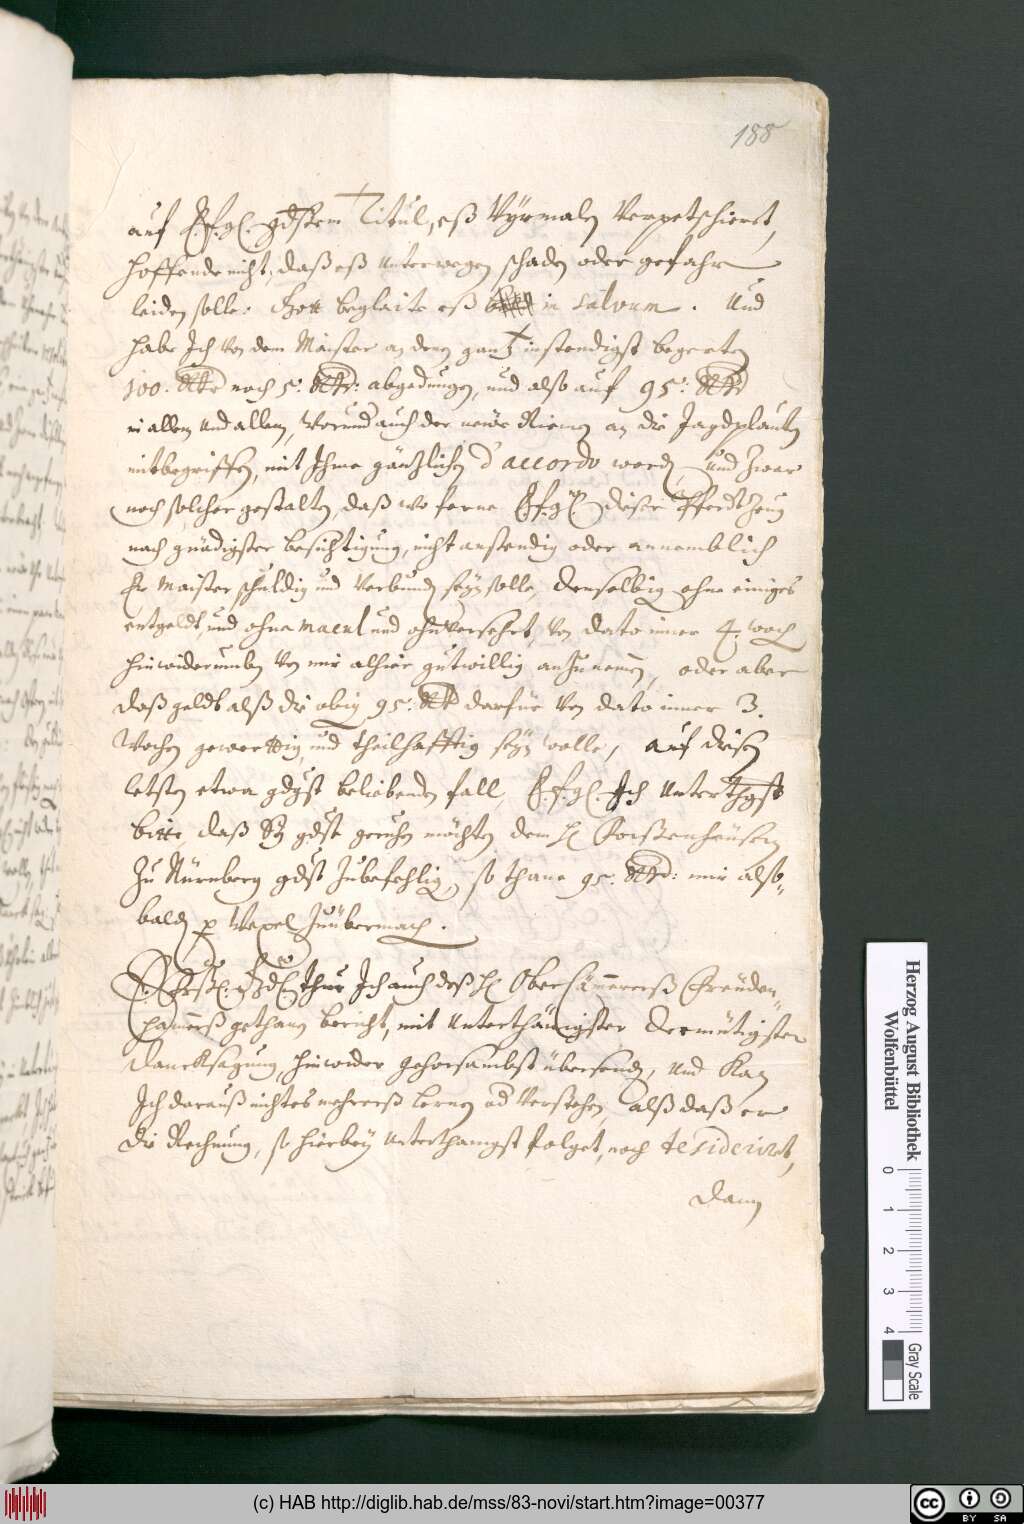 188
auf E. f. gl. gdstem Titul, eß Vÿrmaln Verpetschieret,
hoffende nicht, daß eß unterwegen schaden oder gefahr
leiden solle: Gott beglaite eß in salvum. Und
habe Ich von dem Maister an denn gantz instendigst begerten
100. Rthr noch 5. Rthr: abgedungen, und also auf 95. Rthr
in allem und allem, Vorund auch der neüe Riemen an die Jagdplauten
mitbegriffen, mit Ihme gäntzlichen d'accordo worden, und zwar
noch solcher gestalten, daß wo ferne E. f. gl. dieser Pferdtzeug
nach gnädigster besichtigung, nicht anstendig oder annemblich
Er Maister schuldig und verbunden seyn solle, denselbigen ohne einiges
entgeldt, und ohne macul und ohnversehrt, von dato inner 4. woch
hinwiderumben von mir alhier gutwillig anzunemen, oder aber
daß geldt alß die obige 95. Rth darfür von dato inner 3.
Wochen gewerttig und theilhafftig seyn wolle, auf disen
letsten etwa gdgst beliebenden fall, E. f. gl. Ich unterthgst
bitte, daß Sy gdst geruhen möchten dem H. Forstenheüsern
zu Nürnberg gdst zubefehlen, so thane 95. Rthr: mir also¬
balden p Wexel zuübermachen.
E. Frstl. gdl. thue Ich auch deß H. Ober Cämererß Freüden¬
hammerß gethanen bericht, mit unterthänigster demütigster
dancksagung, hinwider gehorsambst übersenden, und kan
Ich darauß nichtes mehrerß lernen od verstehen, alß daß er
die Rechnung, so hierbey unterthänigst folget, noch desideriret,
dann
Herzog August Bibliothek
Wolfenbüttel
0 1 2 3 4
Gray Scale
(c) HAB http://diglib.hab.de/mss/83-novi/start.htm?image=00377
cc BY SA